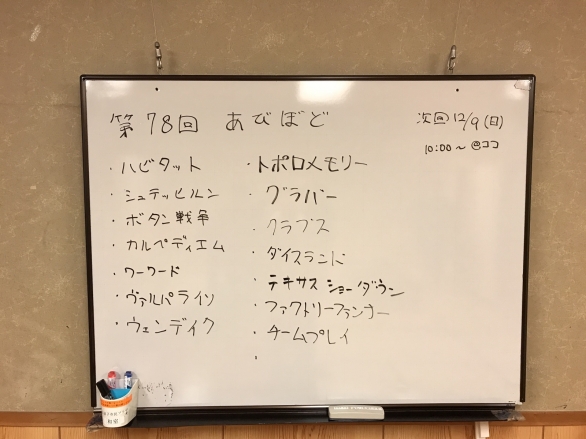 第78回 あびぼど
次回 12/9(日)
10:00~ @ココ
・ハビタット
・シュテッヒルン
・ボタン戦争
・カルペディエム
・ワーワード
・ヴァルパライソ
・ウェンディク
・トポロメモリー
・グラバー
・クラブス
・ダイスランド
・テキサス ショーダウン
・ファクトリーファンナー
・チームプレイ
・